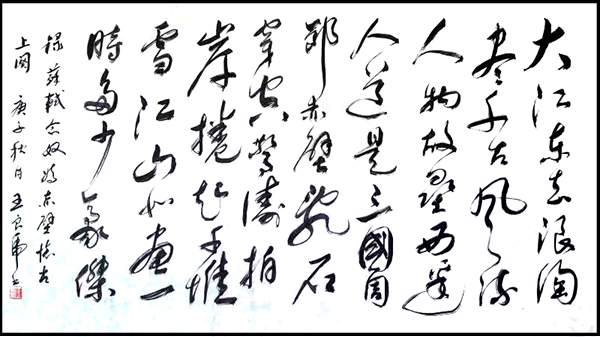 大江东去浪淘
尽千古风流
人物故垒西边
人道是三國周
郎赤壁乱石
穿空惊涛拍
岸捲起千堆
雪江山如画一
时多少豪傑
録苏轼念奴娇赤壁怀古
上阕 庚子秋月 王